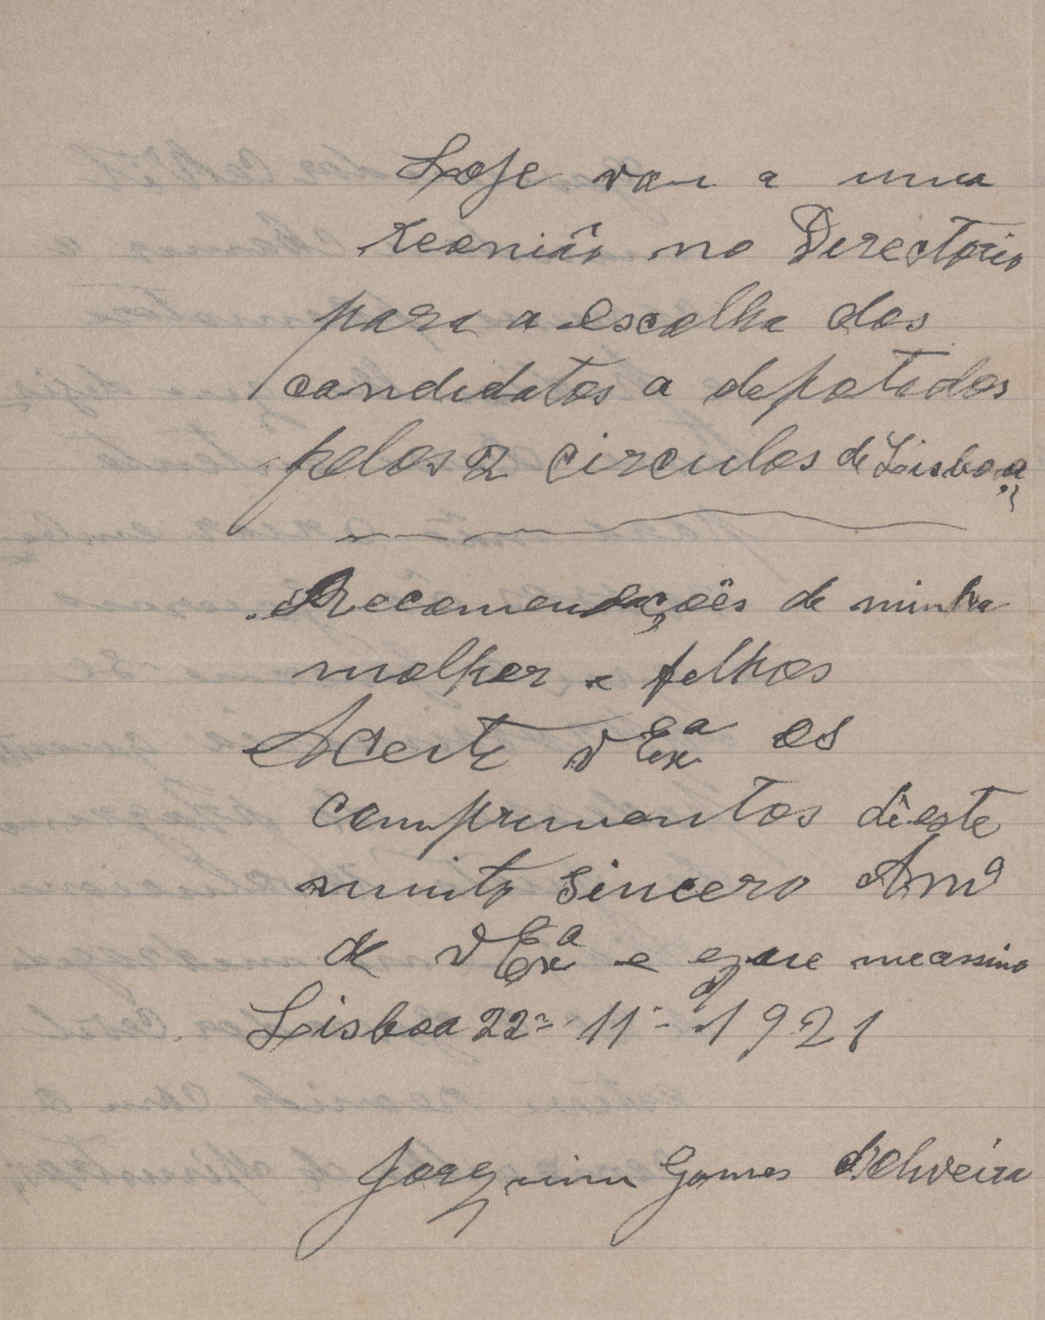 Hoje vou a uma
reonião no Directorio
para a escolha dos
candidatos a depotados
pelos 2 circulos de Lisboa
Recomendações de minha
molher e felhos
Aceite V Exª os
comprimentos d'este
muito sincero Amº
de V Exª e
Lisboa 22-11-1921
Joaquim Gomes d'Oliveira